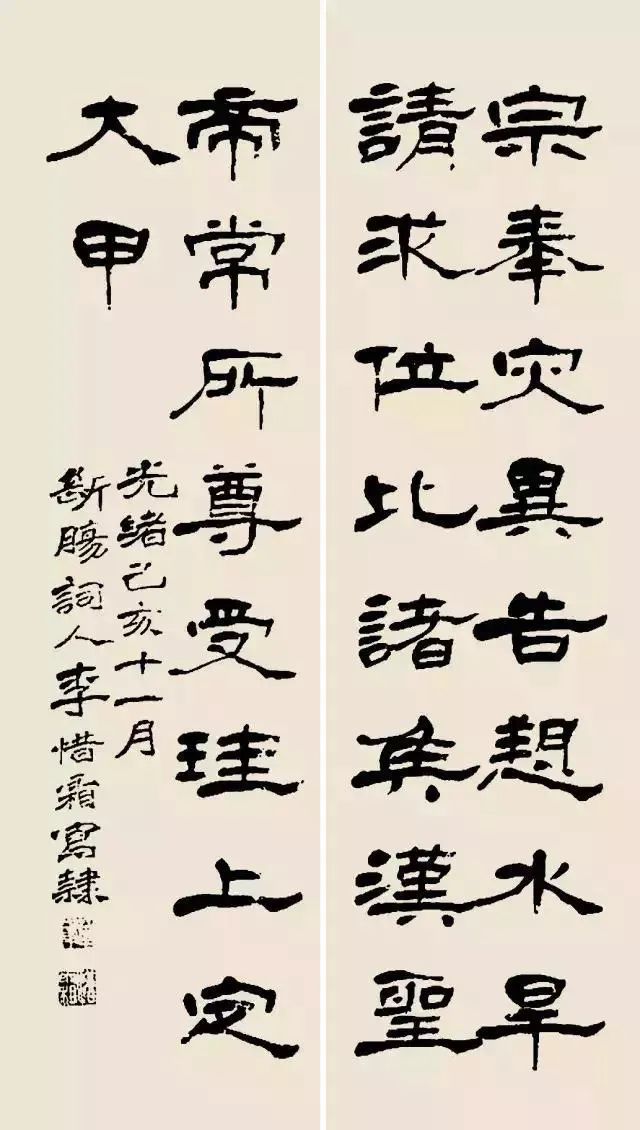 宗奉灾異告愬水旱
請求位比諸侯漢聖
帝常所尊受珪上定
大甲
光緒己亥十一月
斷腸詞人李惜霜寫隸